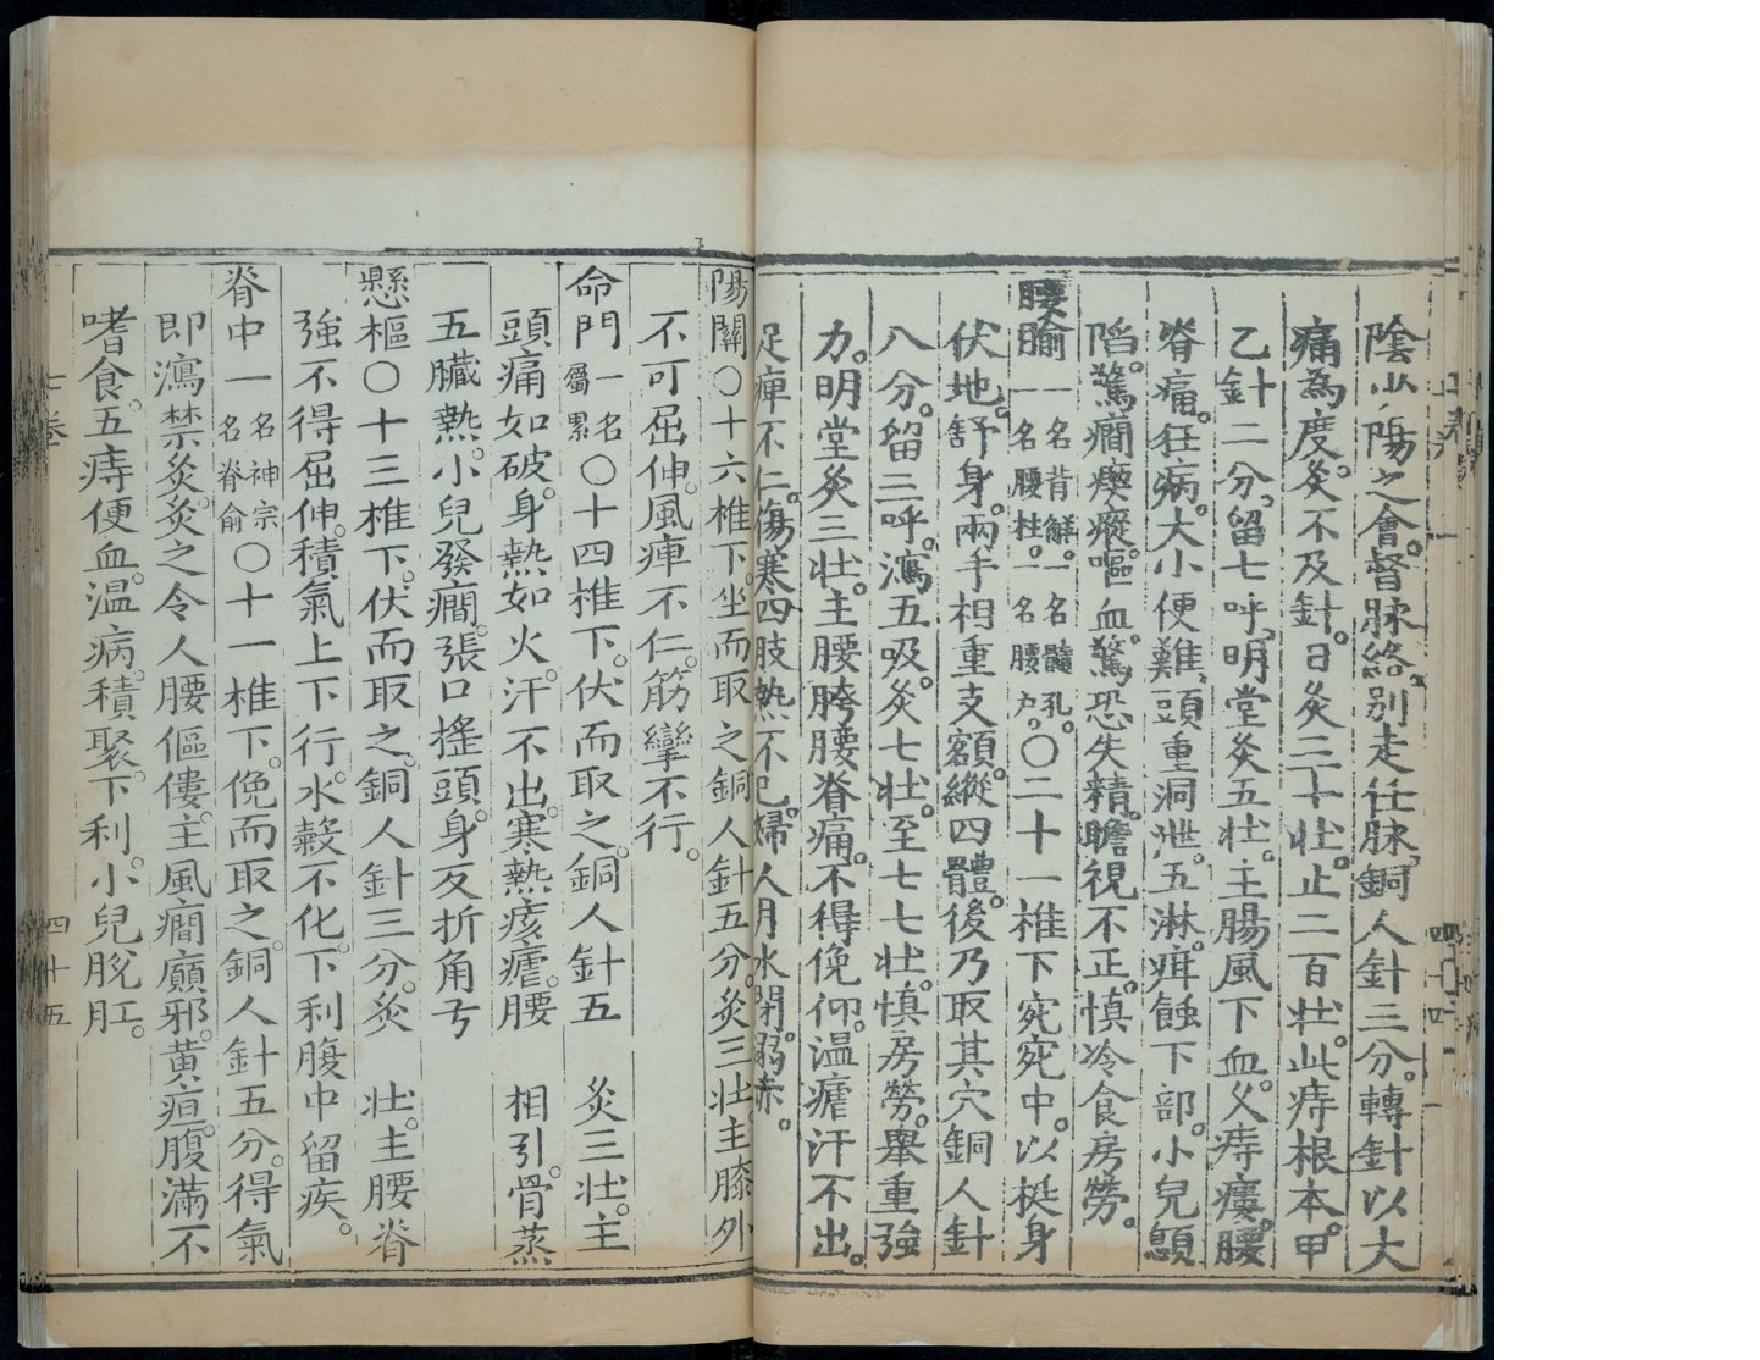 陰少陽之會。督脉絡。别走任脉。銅人針三分。轉針以大
痛為度。灸不及針。日灸三十壯。止二百壯。此痔根本。甲
乙針二分。留七呼。明堂灸五壯。主腸風下血。久痔瘻。腰
脊痛。狂病。大小便難。頭重洞泄。五淋。疳蝕下部。小兒顛
癇驚癇瘈瘲。嘔血。驚恐失精。瞻視不正。慎冷食房勞。
腰腧一名背解。一名髓孔。一名腰柱。一名腰户。〇二十一椎下宛宛中。以挺身
伏地。舒身。兩手相重支額。縱四體。後乃取其穴銅人針
八分。留三呼。瀉五吸。灸七壯。至七七壯。慎房勞。舉重強
力。明堂灸三壯。主腰胯腰脊痛。不得俛仰。温瘧汗不出。
足痺不仁。傷寒四肢熱不已。婦人月水閉。溺赤。
陽關〇十六椎下。坐而取之銅人針五分。灸三壯。主膝外
不可屈伸。風痺不仁。筋攣不行。
命門一名屬累〇十四椎下。伏而取之。銅人針五 灸三壯。主
頭痛如破。身熱如火。汗不出。寒熱痎瘧。腰 相引。骨蒸
五臟熱。小兒發癇。張口搖頭。身反折角弓
懸樞〇十三椎下。伏而取之。銅人針三分。灸 壯。主腰脊
強不得屈伸。積氣上下行。水穀不化。下利腹中留疾。
脊中一名神宗一名脊俞〇十一椎下。俛而取之。銅人針五分。得氣
即瀉。禁灸。灸之令人腰傴僂。主風癇癲邪。黄疸。腹滿不
嗜食。五痔便血。温病。積聚。下利。小兒脫肛。
七卷
四十五